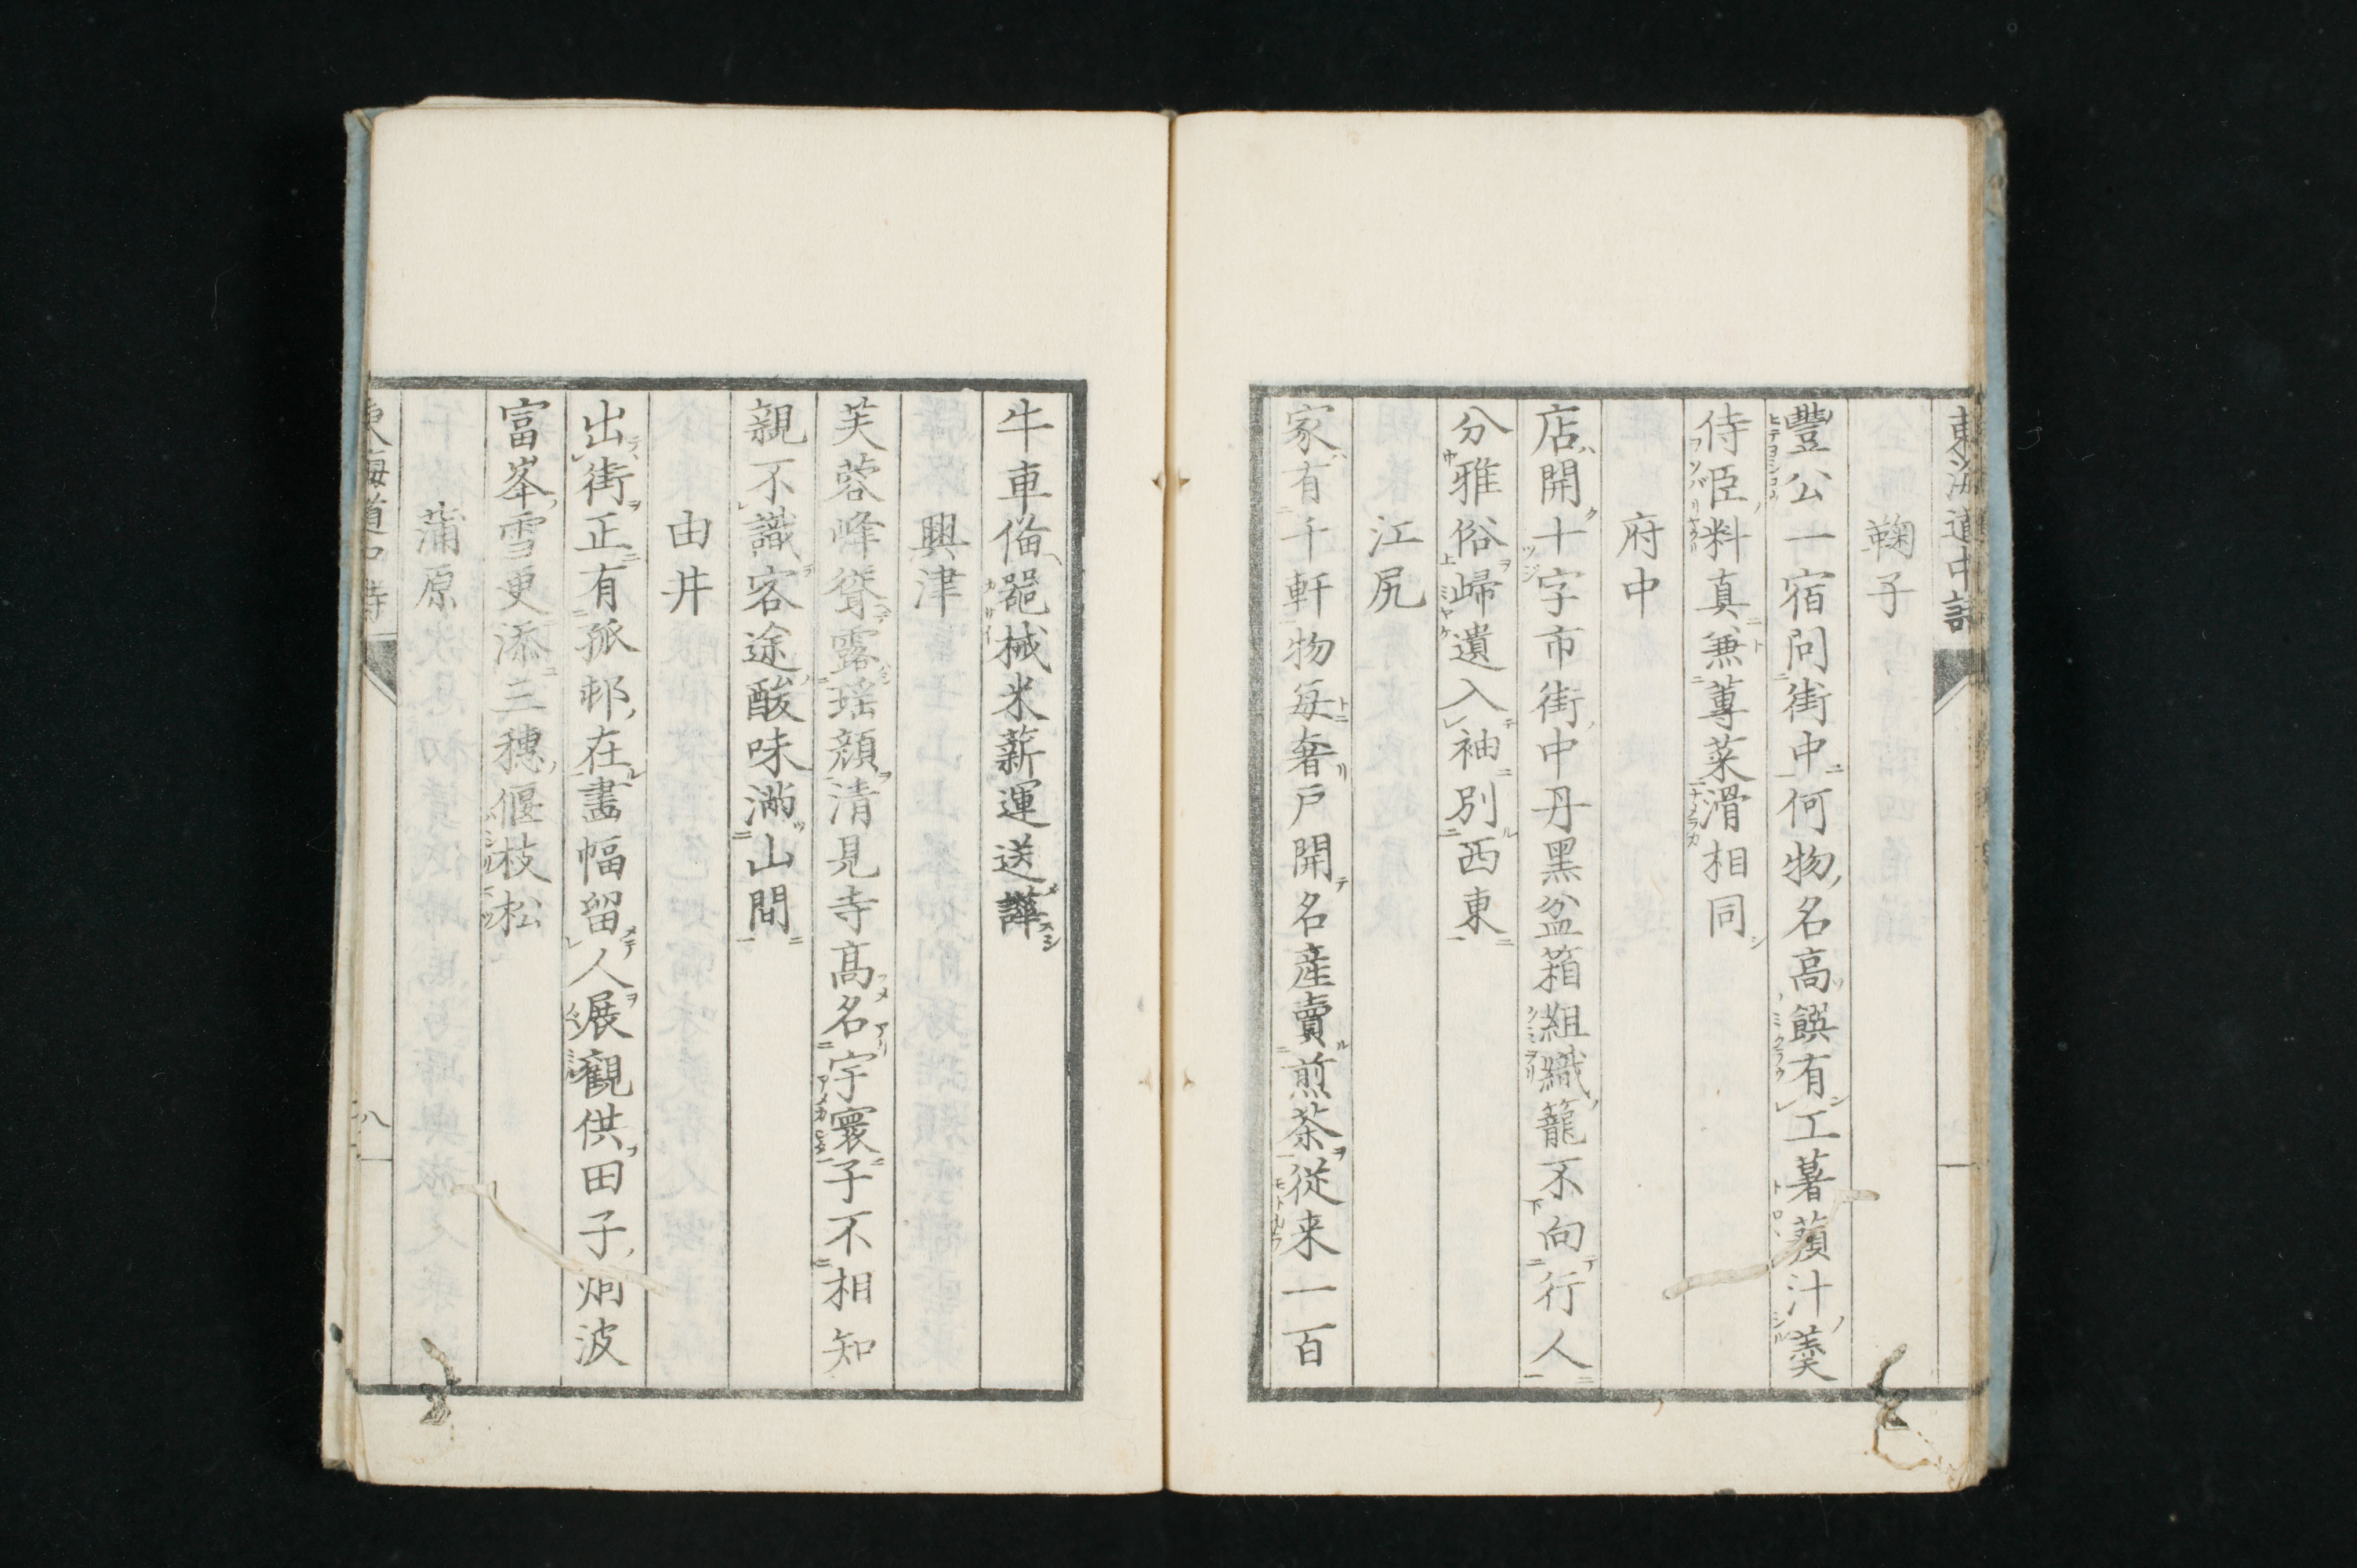 東海道中詩
鞠子
豐公一宿問街中何物名高饌有工薯蕷汁羹
侍臣料真兼蓴菜滑相同
府中
店開十字市街中丹黑盆箱組織籠不向行人
分雅俗歸遺入袖別西東
江尻
家有千軒物每奢戶開名產賣煎茶從来一百
牛車俻噐械米薪運送譁
興津
芙蓉峰聳露瑶顔清見寺高名宇寰子不相知
親不識客途酸味滿山間
由井
出街正有孤邨在畵幅留人展觀供田子炯波
富峯雪更添三穗偃枝松
蒲原
東海道中詩
八